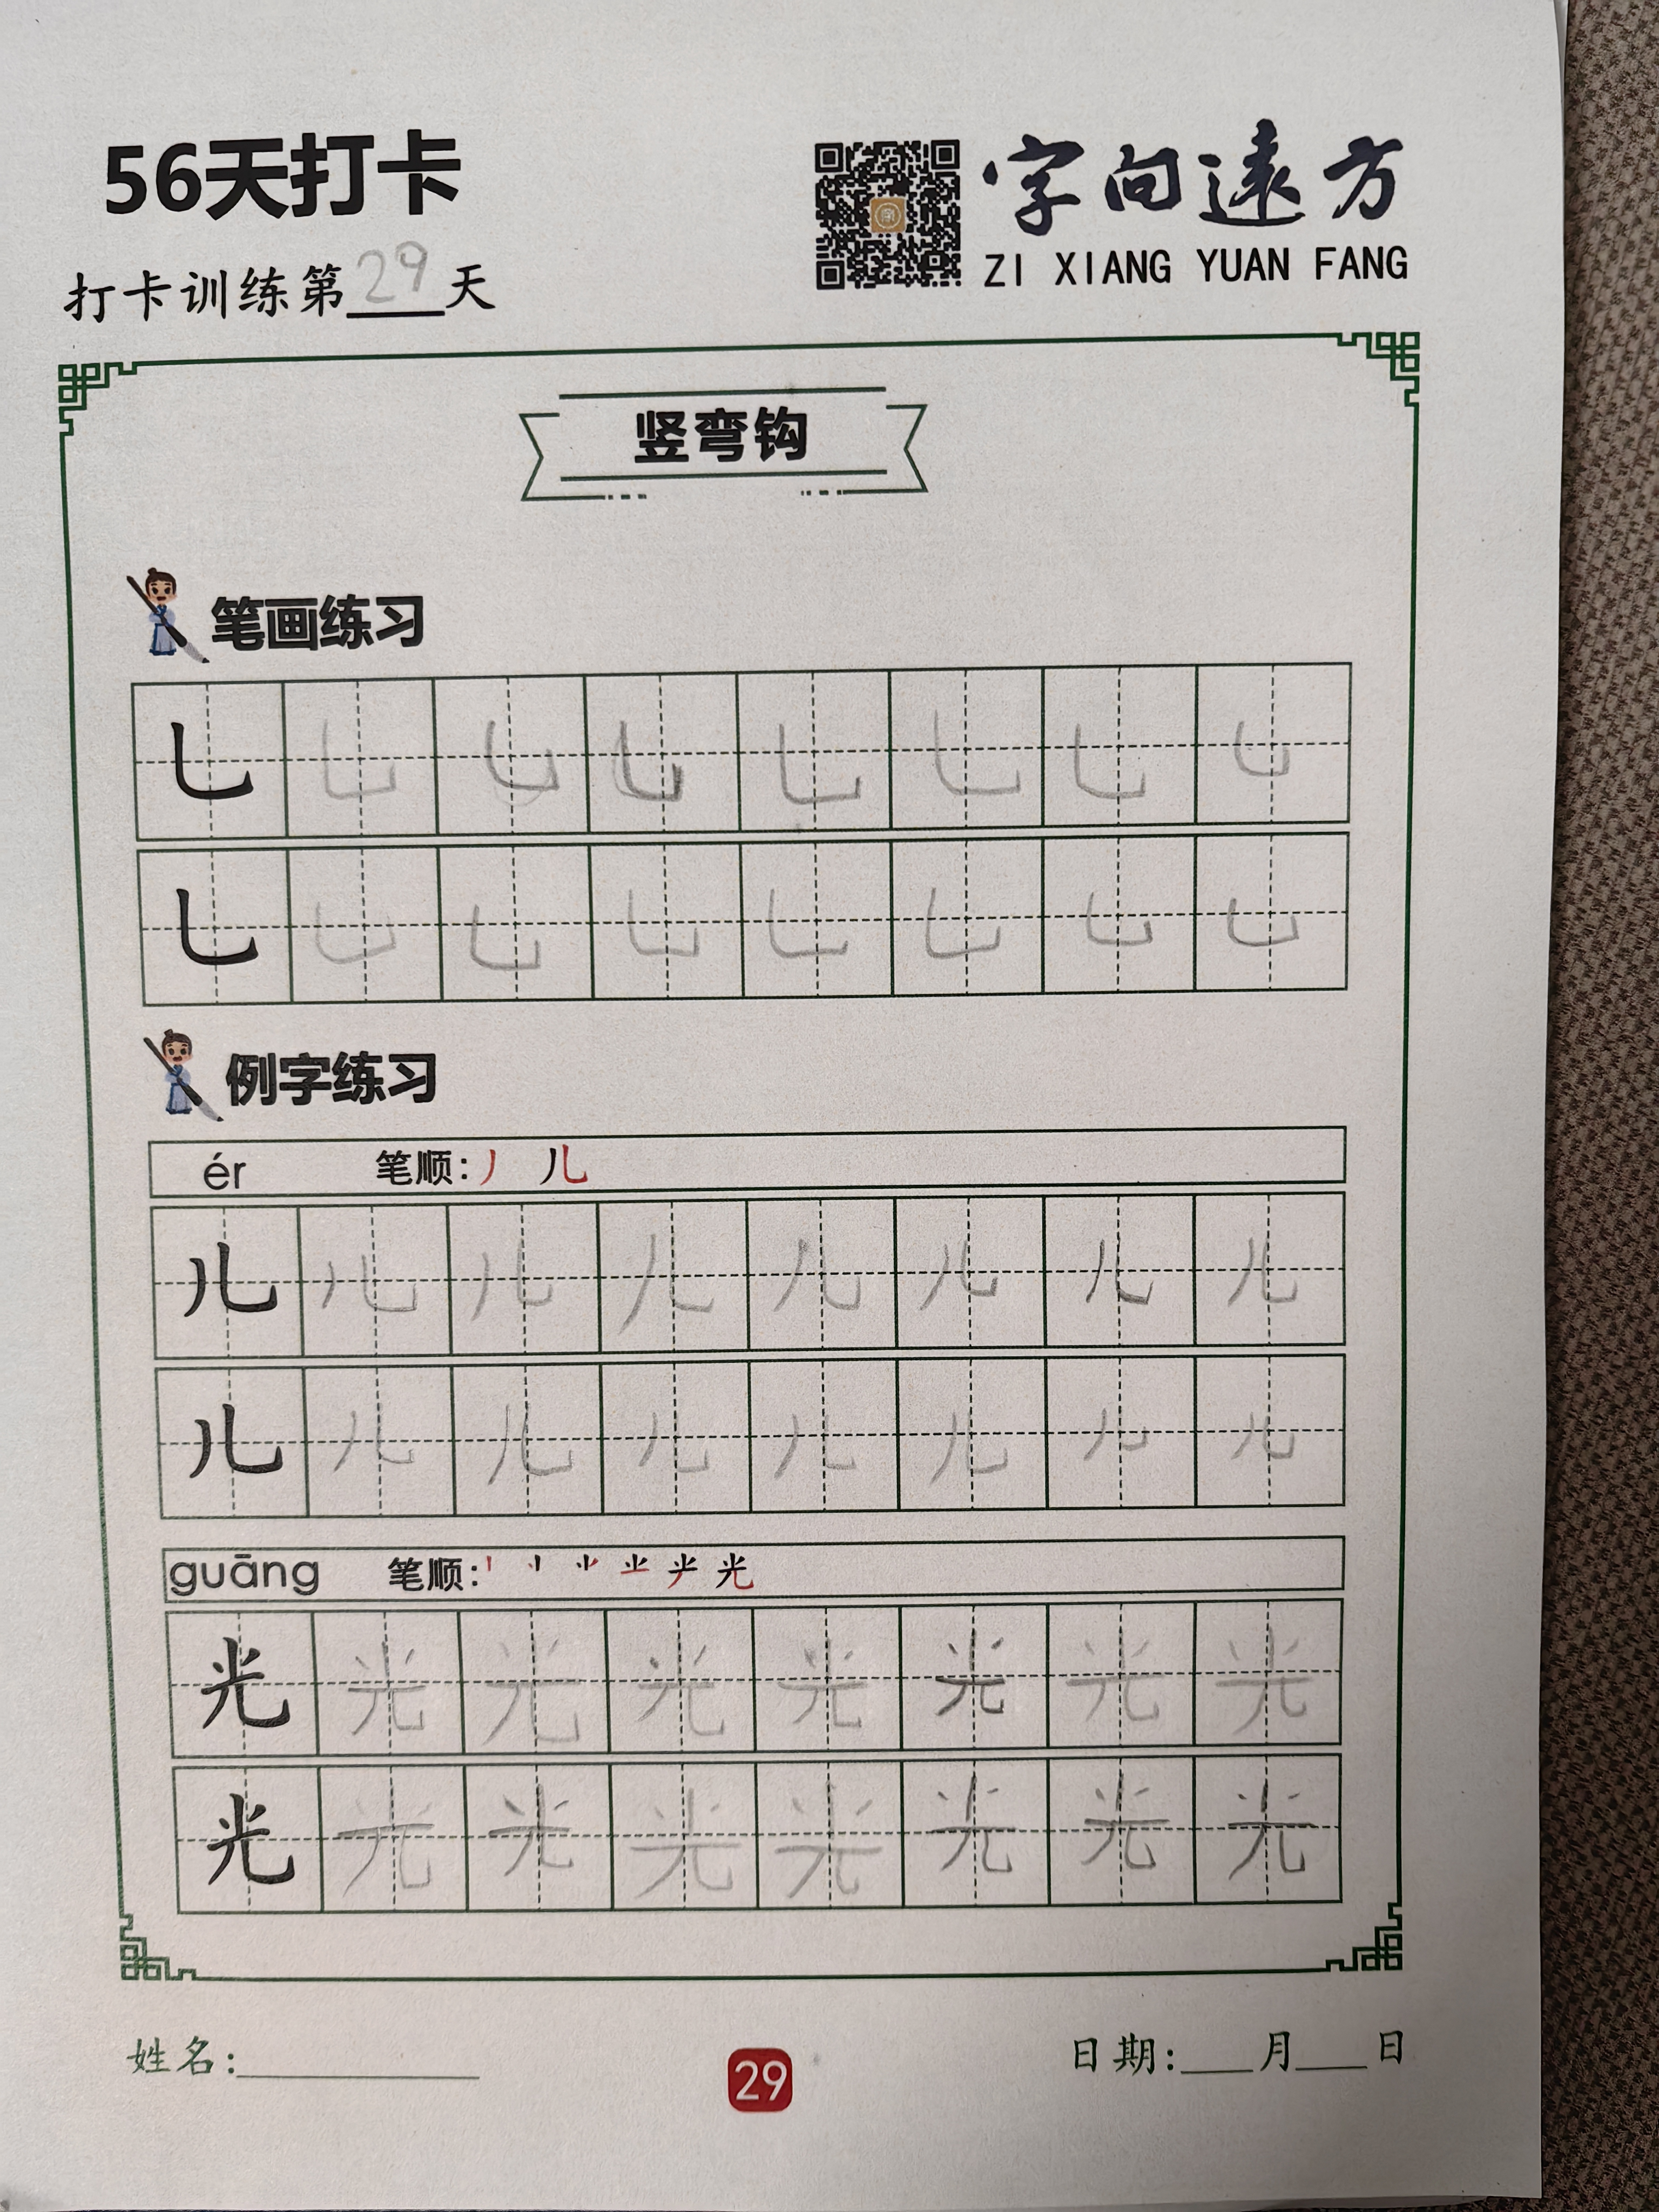 56天打卡
字向遠方
ZI XIANG YUAN FANG
打卡训练第29天
竖弯钩
笔画练习
乚 乚 乚 乚 乚 乚 乚 乚
乚 乚 乚 乚 乚 乚 乚 乚
例字练习
ér 笔顺: 丿 儿
儿 儿 儿 儿 儿 儿 儿 儿
儿 儿 儿 儿 儿 儿 儿 儿
guāng 笔顺: 光
光 光 光 光 光 光 光 光
光 光 光 光 光 光 光 光
姓名:
29
日期: 月 日